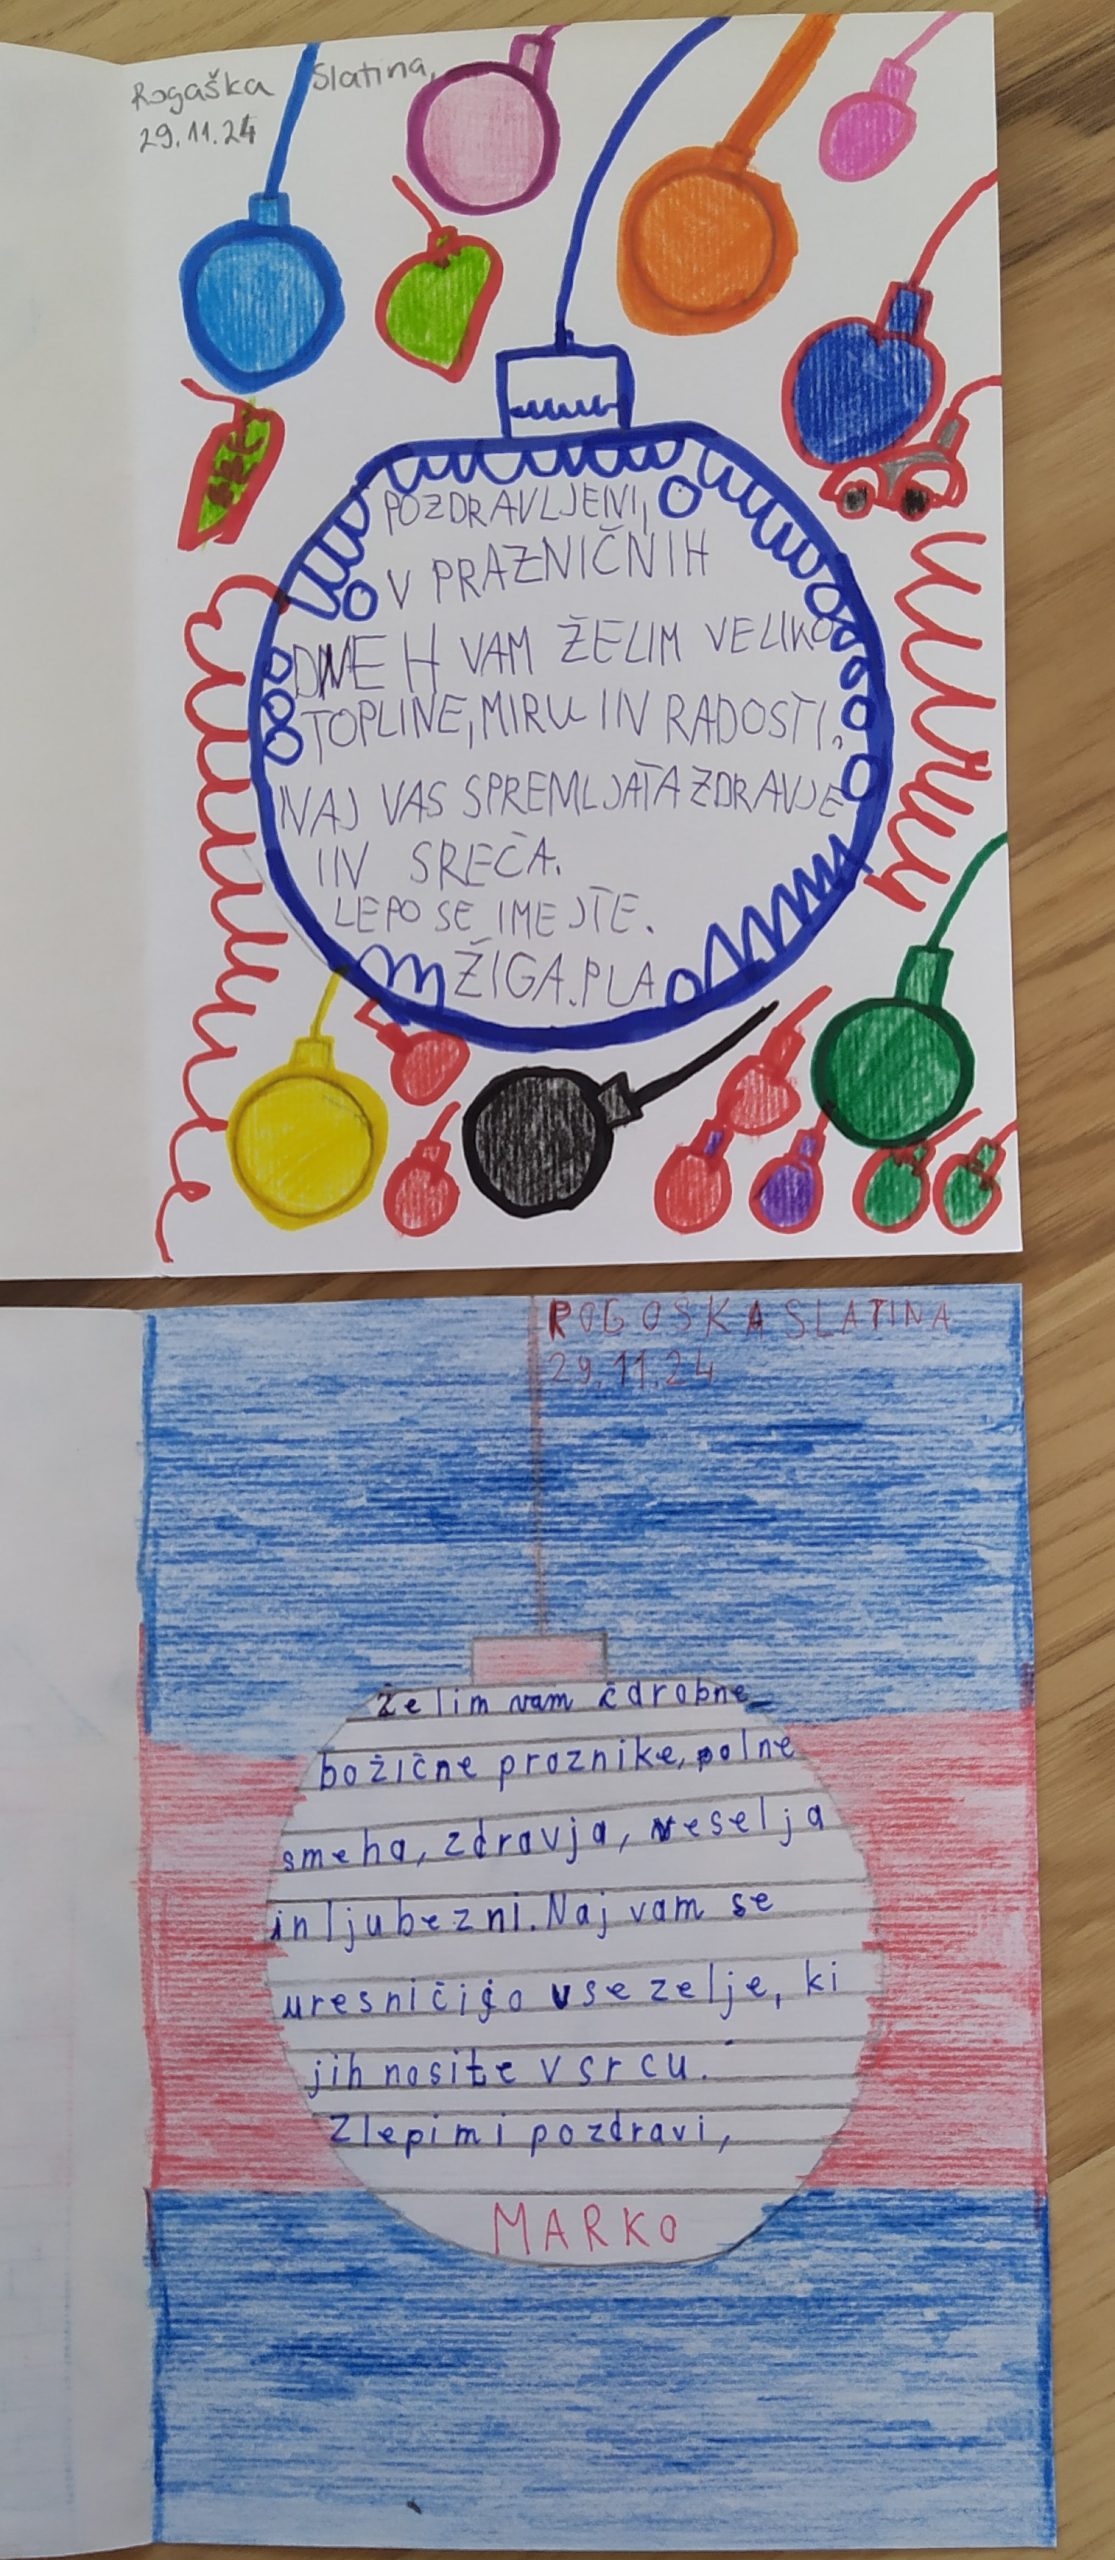 Rogaška Slatina,
29.11.24
POZDRAVLJENI,
V PRAZNIČNIH
DNEH VAM ŽELIM VELIKO
TOPLINE, MIRU IN RADOSTI.
NAJ VAS SPREMLJATA ZDRAVJE
IN SREČA.
LEPO SE IMEJTE.
ŽIGA.PLA
ROGOŠKA SLATINA
29.11.24
Želim vam čdrobne
božične proznike, polne
smeha, zdravja, veselja
in ljubezni. Naj vam se
uresničijo vse zelje, ki
jih nosite v srcu.
Z lepimi pozdravi,
MARKO